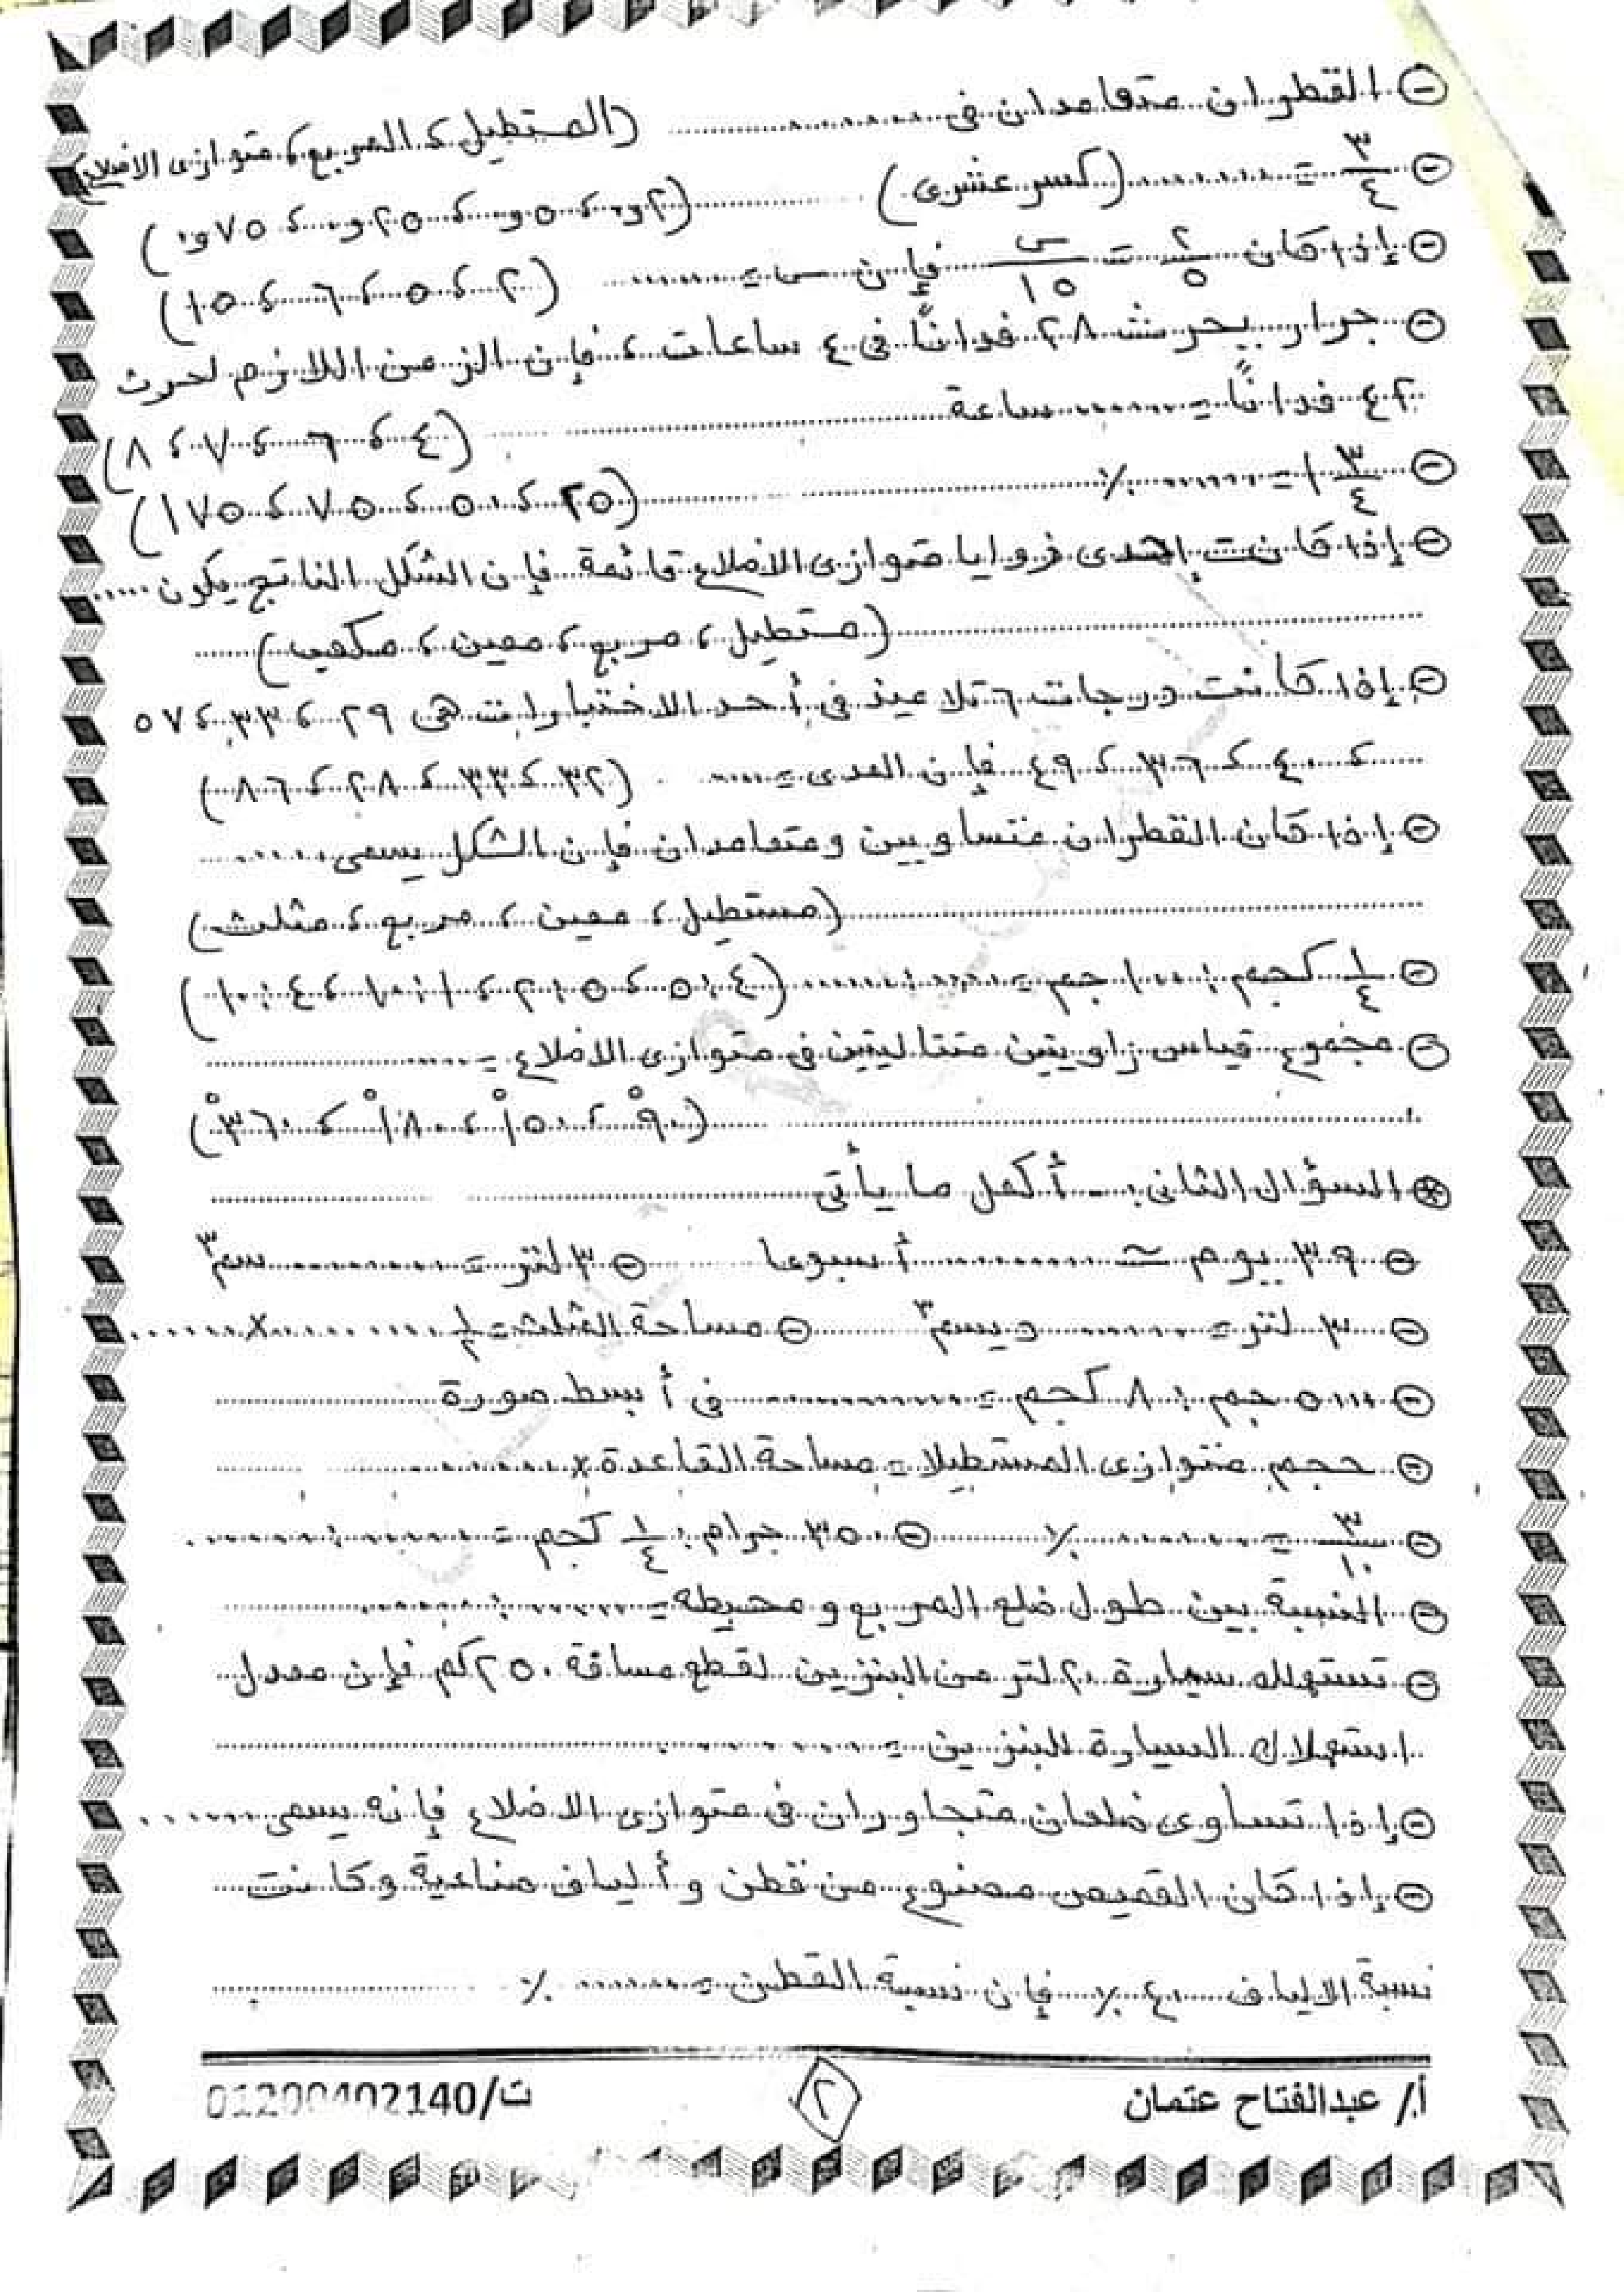 ⊖ القطران متعامدان فى ............ (المستطيل ، المربع ، متوازى الاضلاع)
⊖ ٣/٤ = ............ (كسر عشرى) ............ (٠٫٢ ، ٠٫٥ ، ٠٫٢٥ ، ٠٫٧٥)
⊖ إذا كان ٢/٥ = س/١٥ فإن س = ............ (٢ ، ٥ ، ٦ ، ١٥)
⊖ جرار يحرث ٢٨ فدانًا فى ٤ ساعات ، فإن الزمن اللازم لحرث
٤٢ فدانًا = ............ ساعة ............ (٤ ، ٦ ، ٧ ، ٨)
⊖ ١ ٣/٤ = ............ ٪ ............ (٢٥ ، ٥٠ ، ٧٥ ، ١٧٥)
⊖ إذا كانت إحدى زوايا متوازى الاضلاع قائمة فإن الشكل الناتج يكون ......
............ (مستطيل ، مربع ، معين ، مكعب) ......
⊖ إذا كانت درجات ٦ تلاميذ فى أحد الاختبارات هى ٢٩ ، ٣٣ ، ٥٧
، ٤٠ ، ٣٦ ، ٤٩ فإن المدى = ...... (٣٢ ، ٣٣ ، ٢٨ ، ٨٦)
⊖ إذا كان القطران متساويين ومتعامدان فإن الشكل يسمى ............
............ (مستطيل ، معين ، مربع ، مثلث)
⊖ ١/٤ كجم : ١٠٠ جم = ...... : ...... (٤ : ٥ ، ٥ : ٢ ، ١ : ١٠ ، ٤ : ١٠)
⊖ مجموع قياس زاويتين متتاليتين فى متوازى الاضلاع = ............
............ (٩٠° ، ١٥٠° ، ١٨٠° ، ٣٦٠°)
⊛ السؤال الثانى :- أكمل ما يأتى ............
⊖ ٣٩ يوم ≃ ............ أسبوعا ⊖ ٣ لتر = ............ سم٣
⊖ ٣ لتر = ............ ديسم٣ ⊖ مساحة المثلث = ١/٢ ............ × ............
⊖ ٥٠٠٠ جم : ٨ كجم = ............ فى أبسط صورة ............
⊖ حجم متوازى المستطيلات = مساحة القاعدة × ............
⊖ ٣/١٠ = ............ ٪ ⊖ ٣٥٠ جرام : ١/٤ كجم = ...... : ......
⊖ النسبة بين طول ضلع المربع و محيطه = ...... : ......
⊖ تستهلك سيارة ٢٠ لتر من البنزين لقطع مسافة ٢٥٠ كم فإن معدل
استهلاك السيارة للبنزين = ............
⊖ إذا تساوى ضلعان متجاوران فى متوازى الاضلاع فإنه يسمى ............
⊖ إذا كان القميص مصنوع من قطن و ألياف صناعية وكانت
نسبة الالياف ٤٠ ٪ فإن نسبة القطن = ............ ٪ ............
أ/ عبدالفتاح عتمان
٢
ت/